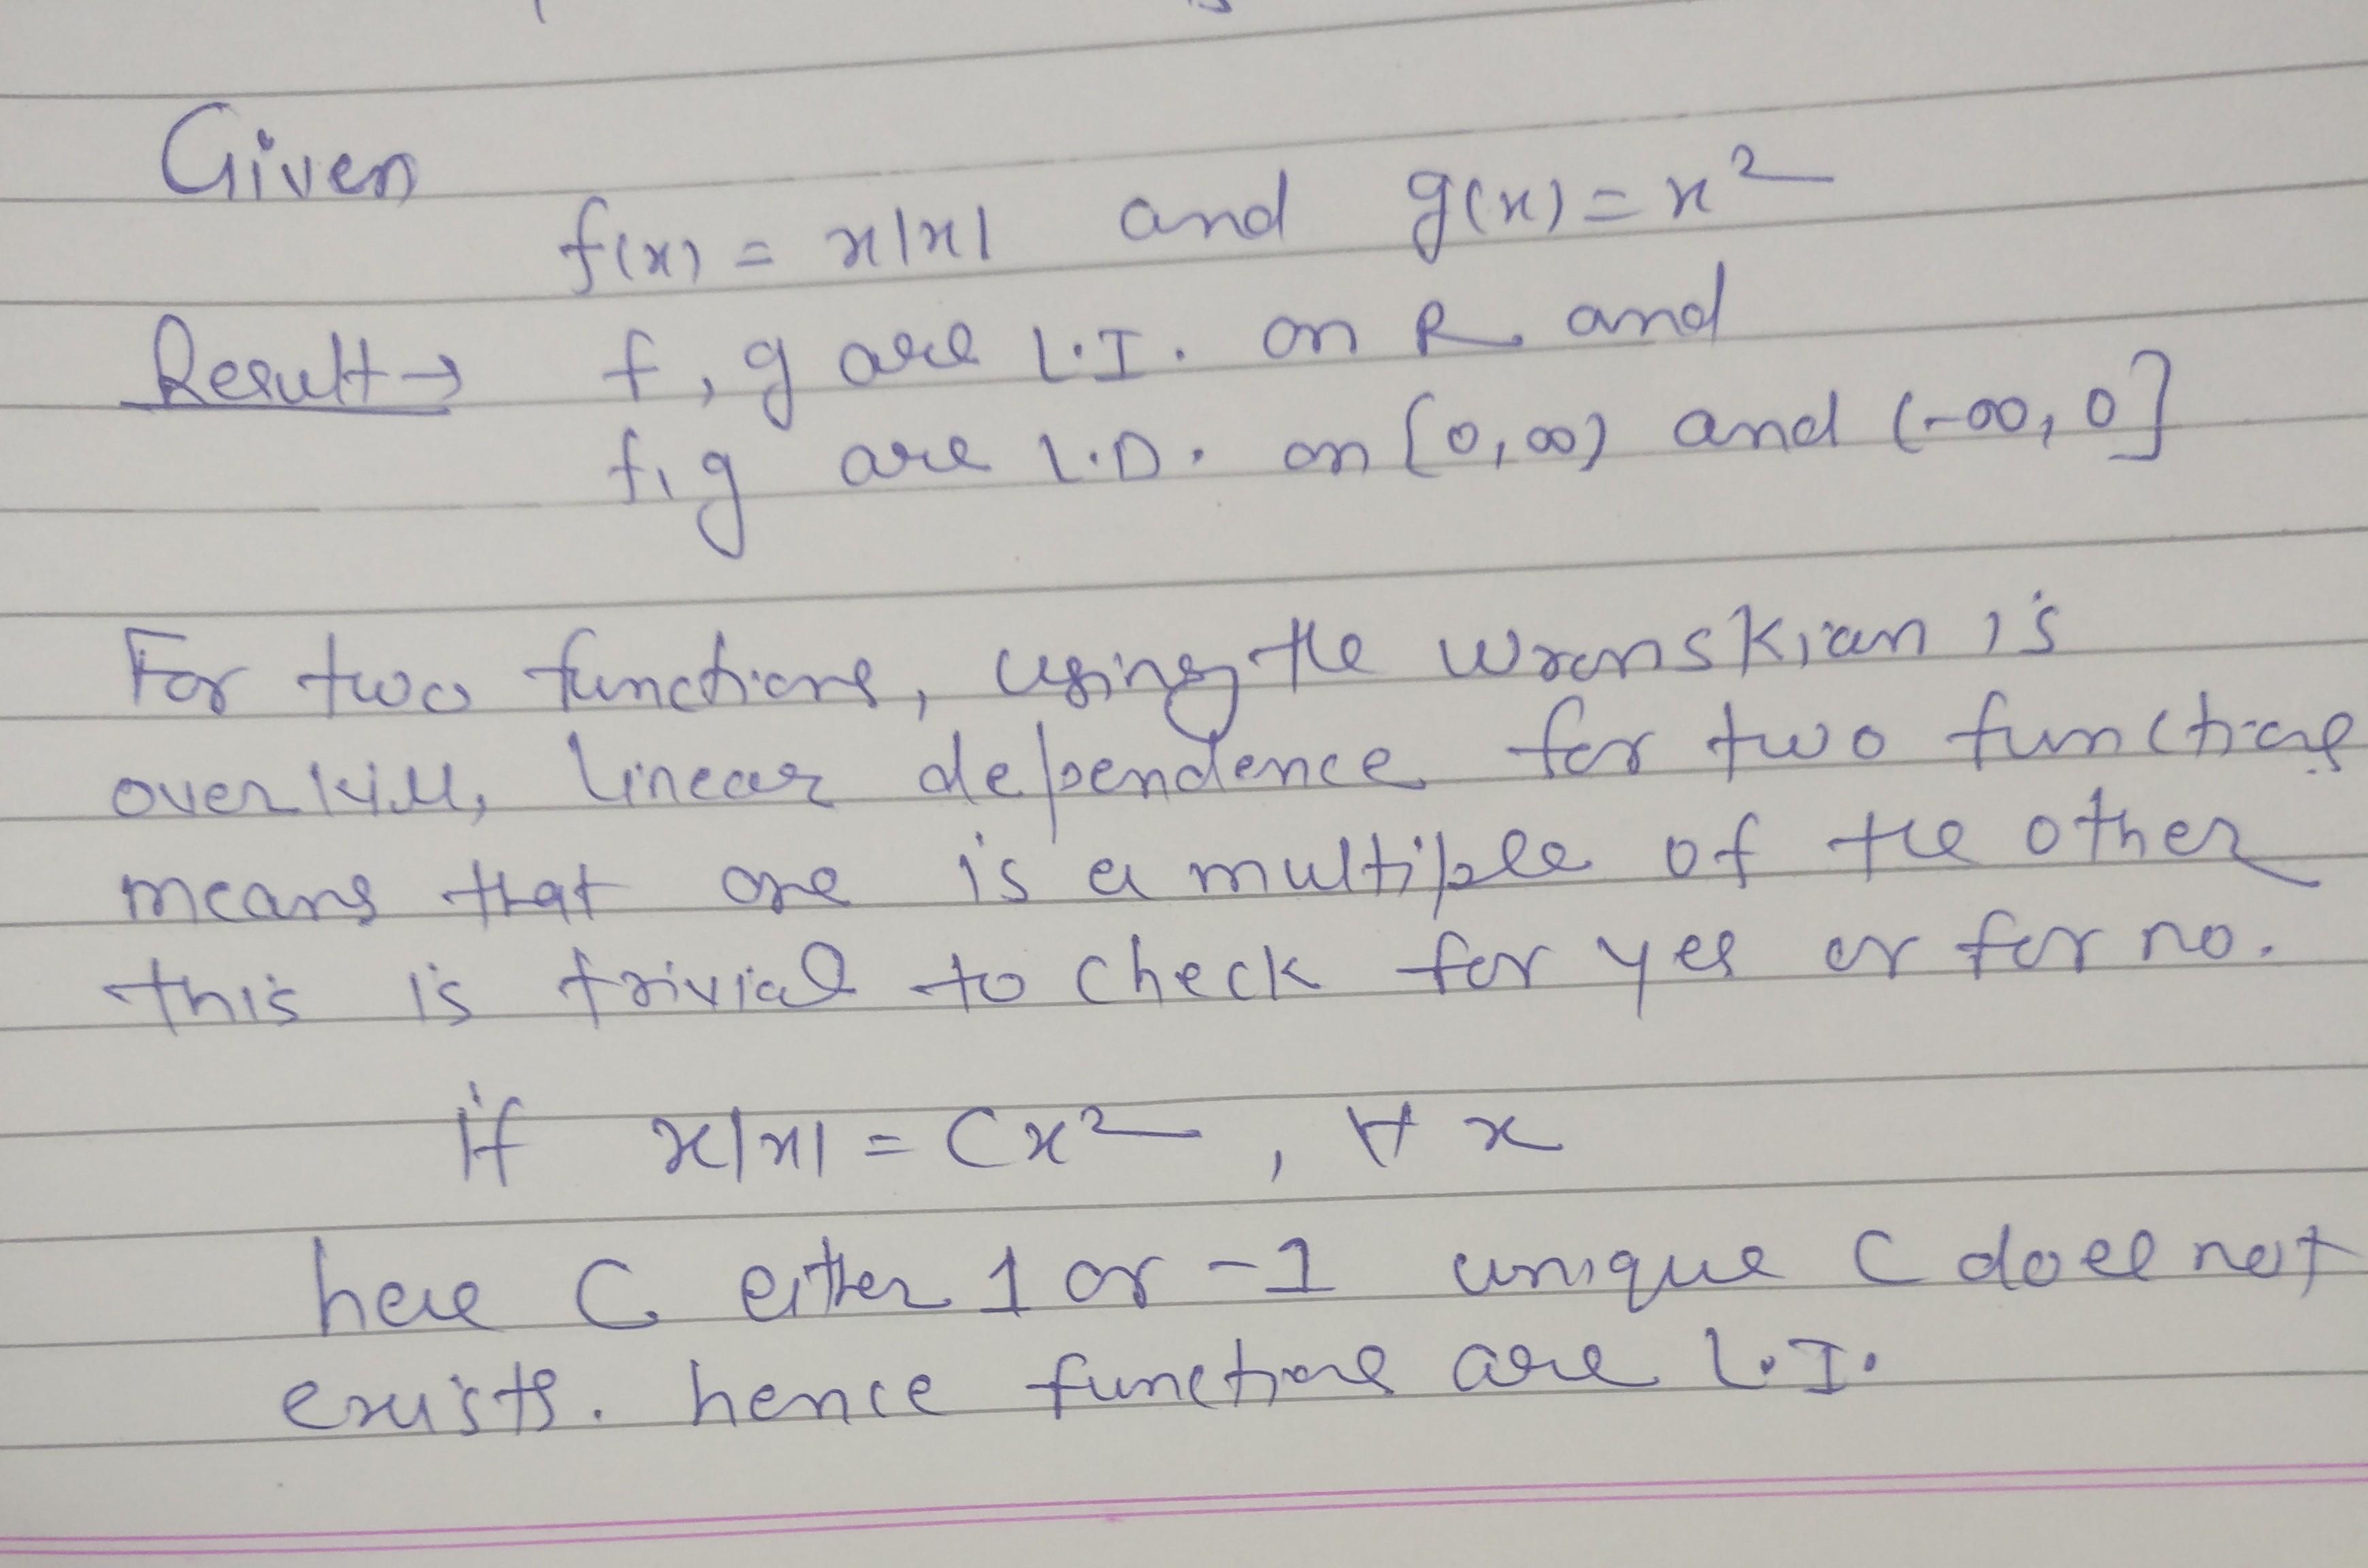 Given
f(x) = x|x| and g(x) = x²
Result → f, g are L.I. on R and
f, g are L.D. on [0, ∞) and (-∞, 0]
For two functions, using the wronskian is
overkill, linear dependence for two functions
means that one is a multiple of the other
this is trivial to check for yes or for no.
if x|x| = Cx², ∀ x
here C either 1 or -1 unique C does not
exists. hence functions are L.I.